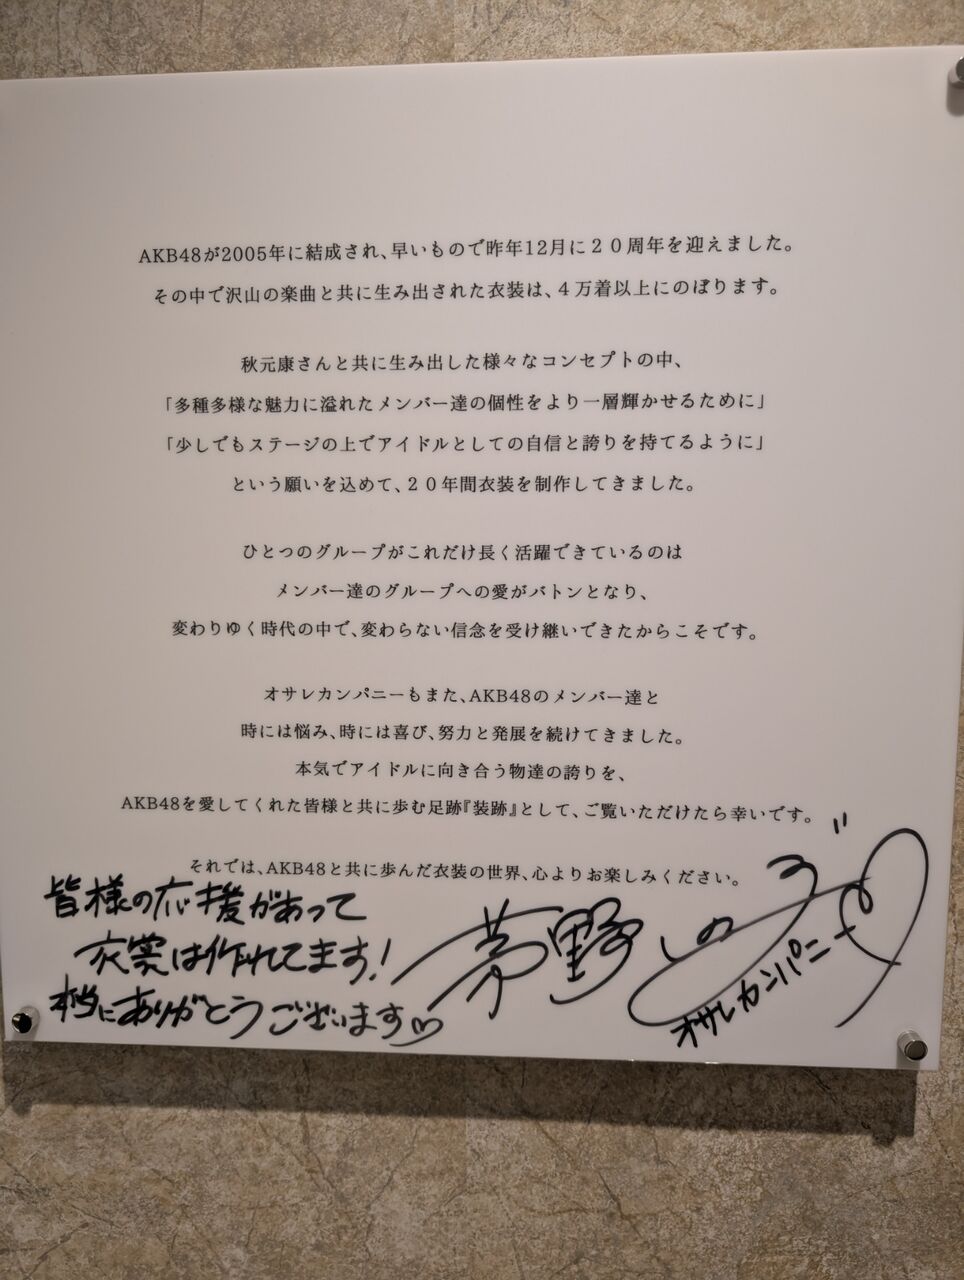 AKB48が2005年に結成され、早いもので昨年12月に２０周年を迎えました。
その中で沢山の楽曲と共に生み出された衣装は、４万着以上にのぼります。
秋元康さんと共に生み出した様々なコンセプトの中、
「多種多様な魅力に溢れたメンバー達の個性をより一層輝かせるために」
「少しでもステージの上でアイドルとしての自信と誇りを持てるように」
という願いを込めて、２０年間衣装を制作してきました。
ひとつのグループがこれだけ長く活躍できているのは
メンバー達のグループへの愛がバトンとなり、
変わりゆく時代の中で、変わらない信念を受け継いできたからこそです。
オサレカンパニーもまた、AKB48のメンバー達と
時には悩み、時には喜び、努力と発展を続けてきました。
本気でアイドルに向き合う物達の誇りを、
AKB48を愛してくれた皆様と共に歩む足跡『装跡』として、ご覧いただけたら幸いです。
それでは、AKB48と共に歩んだ衣装の世界、心よりお楽しみください。
皆様の応援があって
衣装は作れてます!
本当にありがとうございます♡
茅野しのぶ
オサレカンパニー